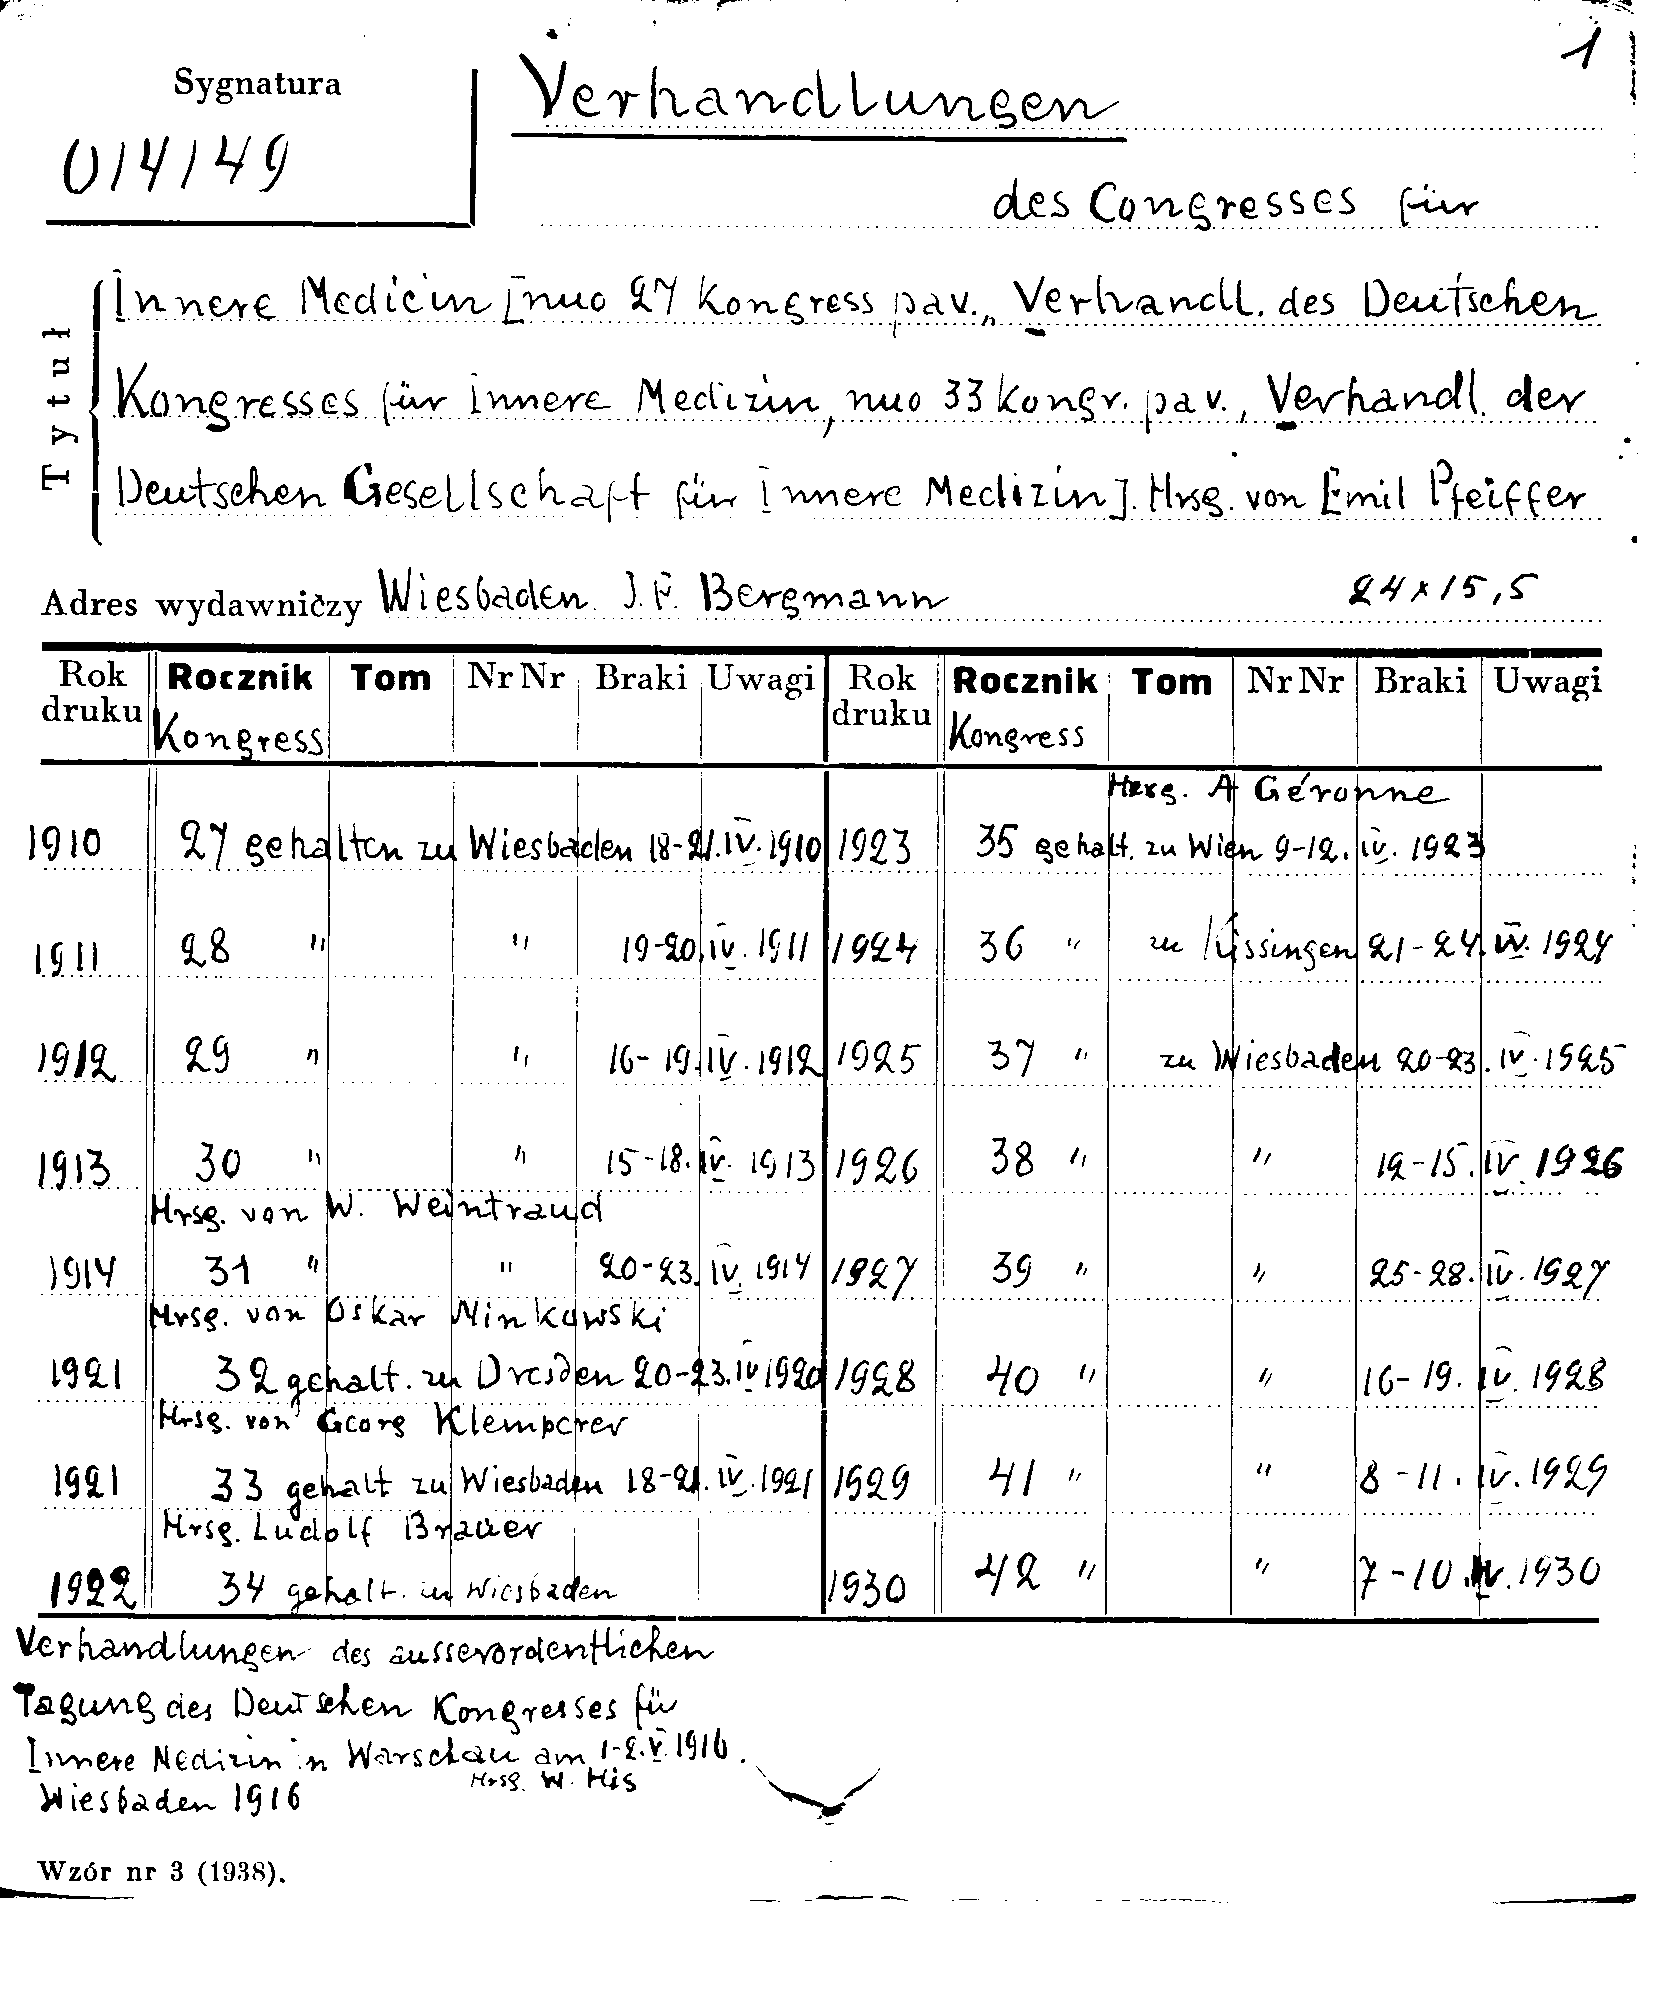 1
Sygnatura
014149
Verhandlungen
des Congresses für
Tytuł
Innere Medicin [nuo 27 Kongress pav. „Verhandl. des Deutschen
Kongresses für innere Medizin, nuo 33 kongr. pav., Verhandl. der
Deutschen Gesellschaft für innere Medizin]. Hrsg. von Emil Pfeiffer
Adres wydawniczy Wiesbaden. J. F. Bergmann 24 x 15,5
Rok druku Rocznik Tom Nr Nr Braki Uwagi Rok druku Rocznik Tom Nr Nr Braki Uwagi
Kongress Kongress
1910 27 gehalten zu Wiesbaden 18-21. IV. 1910
1911 28 " " 19-20. IV. 1911
1912 29 " " 16-19. IV. 1912
1913 30 " " 15-18. IV. 1913
Hrsg. von W. Weintraud
1914 31 " " 20-23. IV. 1914
Hrsg. von Oskar Minkowski
1921 32 gehalt. zu Dresden 20-23. IV 1920
Hrsg. von Georg Klemperer
1921 33 gehalt zu Wiesbaden 18-21. IV. 1921
Hrsg. Ludolf Brauer
1922 34 gehalt. in Wiesbaden
Hrsg. A Géronne
1923 35 gehalt. zu Wien 9-12. IV. 1923
1924 36 " zu Kissingen 21-24. IV. 1924
1925 37 " zu Wiesbaden 20-23. IV. 1925
1926 38 " " 12-15. IV. 1926
1927 39 " " 25-28. IV. 1927
1928 40 " " 16-19. IV. 1928
1929 41 " " 8-11. IV. 1929
1930 42 " " 7-10. IV. 1930
Verhandlungen des ausserordentlichen
Tagung des Deutschen Kongresses für
Innere Medizin in Warschau am 1-2. V. 1916.
Hrsg. W. His
Wiesbaden 1916
Wzór nr 3 (1938).